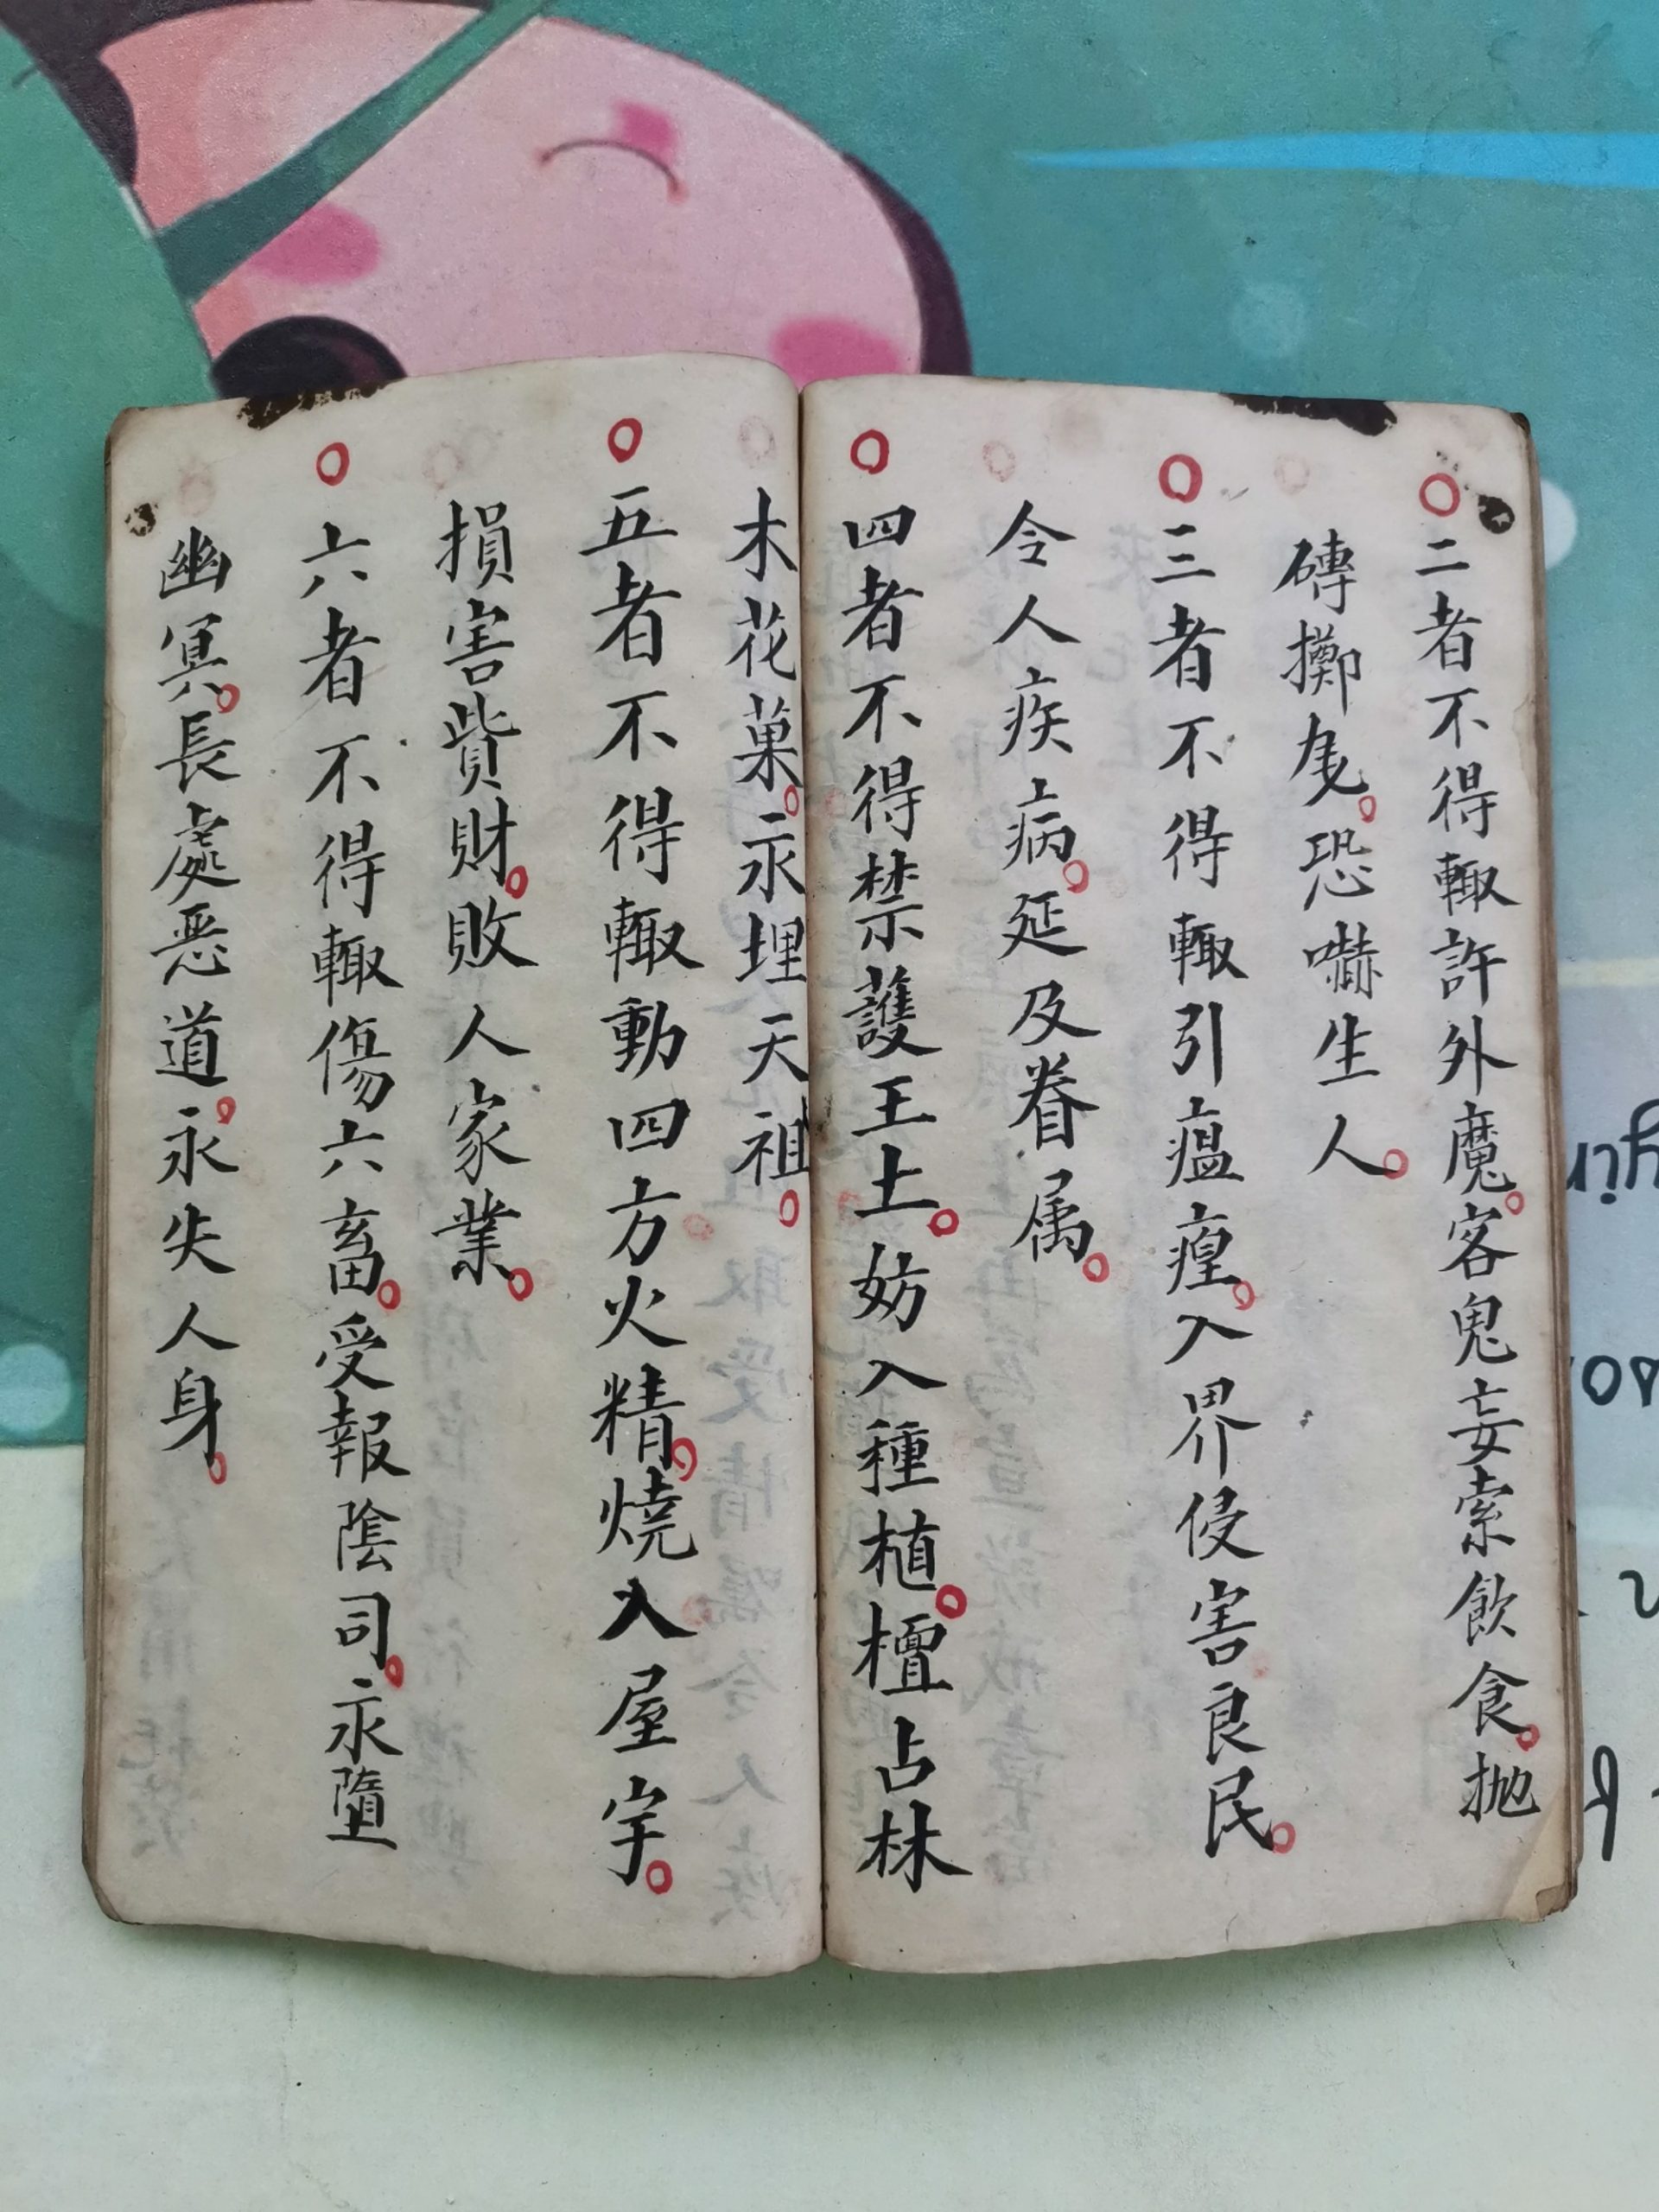 二者不得輙許外魔。客鬼妄索飲食。抛
磚擲瓦。恐嚇生人。
三者不得輙引瘟瘟。入界侵害良民。
令人疾病。延及眷属。
四者不得禁護王土。妨入種植。檀占林
木花菓。永埋天祖。
五者不得輙動四方火精。燒入屋宇。
損害貲財。敗人家業。
六者不得輙傷六畜。受報陰司。永墮
幽冥。長處恶道。永失人身。